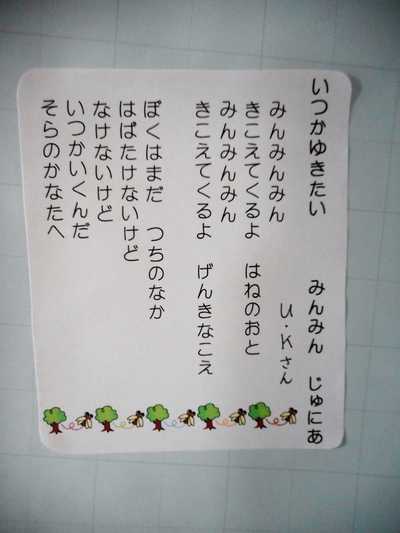 いつかゆきたい　みんみん　じゅにあ
U・Kさん
みんみんみん
きこえてくるよ　はねのおと
みんみんみん
きこえてくるよ　げんきなこえ
ぼくはまだ　つちのなか
はばたけないけど
なけないけど
いつかいくんだ
そらのかなたへ